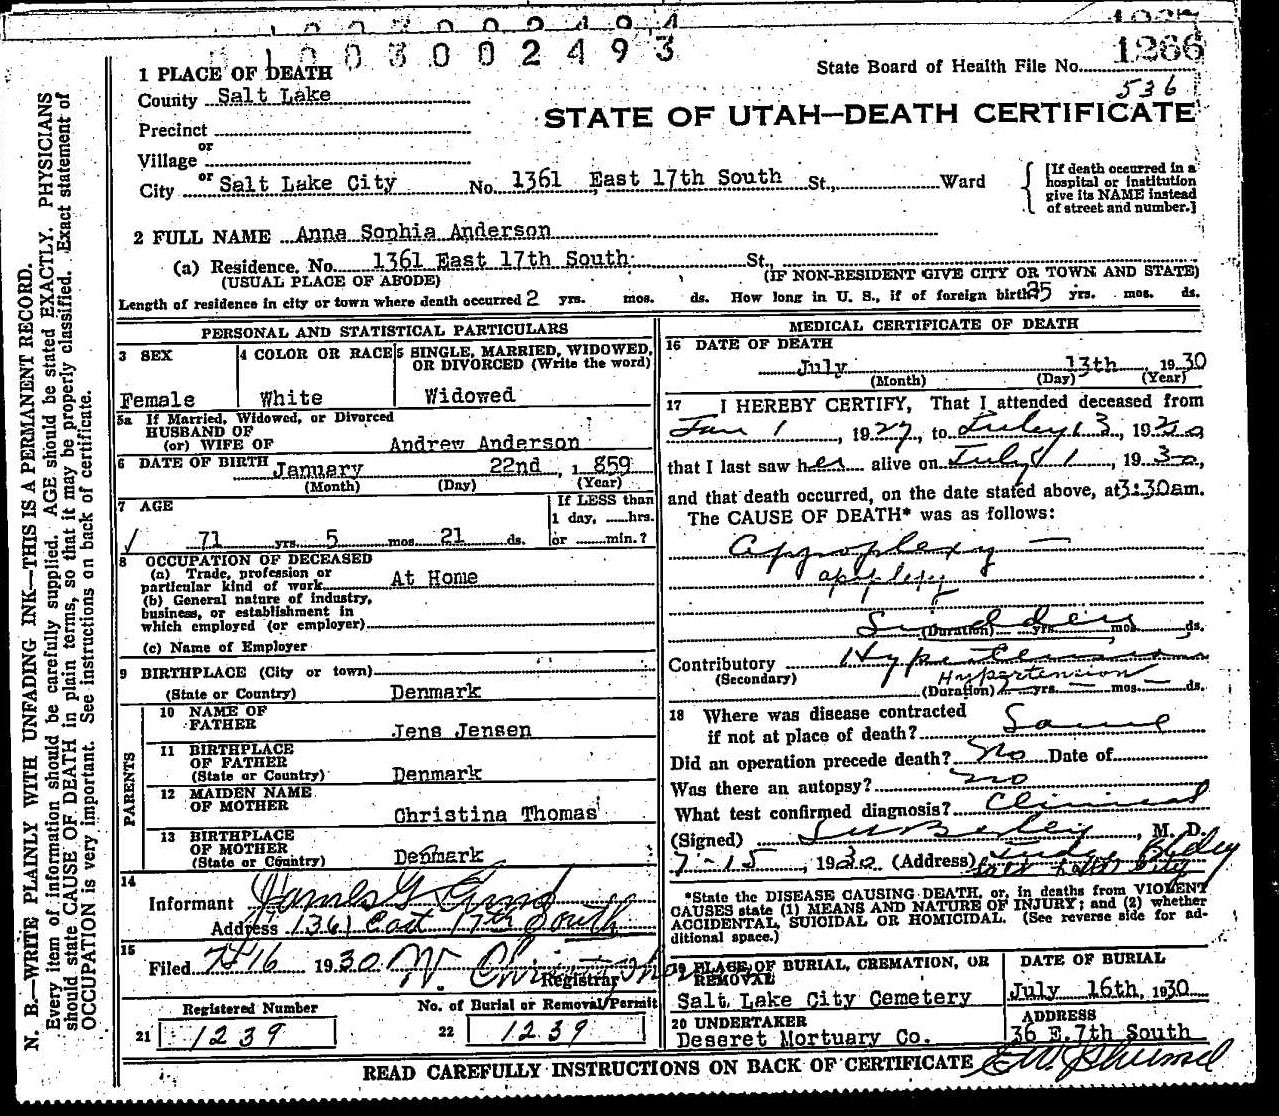 1003002493
1266
State Board of Health File No.
536
1 PLACE OF DEATH
County Salt Lake
STATE OF UTAH—DEATH CERTIFICATE
Precinct
or
Village
or
City Salt Lake City No. 1361 East 17th South St., Ward
[If death occurred in a
hospital or institution
give its NAME instead
of street and number.]
2 FULL NAME Anna Sophia Anderson
(a) Residence. No. 1361 East 17th South St.,
(USUAL PLACE OF ABODE) (IF NON-RESIDENT GIVE CITY OR TOWN AND STATE)
Length of residence in city or town where death occurred 2 yrs. mos. ds. How long in U. S., if of foreign birth? 35 yrs. mos. ds.
PERSONAL AND STATISTICAL PARTICULARS
3 SEX
Female
4 COLOR OR RACE
White
5 SINGLE, MARRIED, WIDOWED,
OR DIVORCED (Write the word)
Widowed
5a If Married, Widowed, or Divorced
HUSBAND OF
(or) WIFE OF Andrew Anderson
6 DATE OF BIRTH January 22nd, 1859
(Month) (Day) (Year)
7 AGE
If LESS than
1 day, hrs.
or min.?
71 yrs. 5 mos. 21 ds.
8 OCCUPATION OF DECEASED
(a) Trade, profession or
particular kind of work At Home
(b) General nature of industry,
business, or establishment in
which employed (or employer)
(c) Name of Employer
9 BIRTHPLACE (City or town)
(State or Country) Denmark
PARENTS
10 NAME OF
FATHER Jens Jensen
11 BIRTHPLACE
OF FATHER
(State or Country) Denmark
12 MAIDEN NAME
OF MOTHER Christina Thomas
13 BIRTHPLACE
OF MOTHER
(State or Country) Denmark
14
Informant James G.
Address 1361 East 17th South
15
Filed 7-16 1930 W.
Registrar
Registered Number
21 1239
No. of Burial or Removal Permit
22 1239
MEDICAL CERTIFICATE OF DEATH
16 DATE OF DEATH
July 13th 1930
(Month) (Day) (Year)
17 I HEREBY CERTIFY, That I attended deceased from
Jan 1, 1927, to July 13, 1930
that I last saw her alive on July 11, 1930,
and that death occurred, on the date stated above, at 3:30am.
The CAUSE OF DEATH* was as follows:
Appoplexy —
apoplexy
Sudden
(Duration) yrs. mos. ds.
Contributory Hypertension
(Secondary) Hypertension
(Duration) yrs. mos. ds.
18 Where was disease contracted
if not at place of death? Same
Did an operation precede death? No Date of
Was there an autopsy? no
What test confirmed diagnosis? Clinical
(Signed) , M. D.
7-15, 1930 (Address) Bldg
Salt Lake City
*State the DISEASE CAUSING DEATH, or, in deaths from VIOLENT
CAUSES state (1) MEANS AND NATURE OF INJURY; and (2) whether
ACCIDENTAL, SUICIDAL OR HOMICIDAL. (See reverse side for ad-
ditional space.)
19 PLACE OF BURIAL, CREMATION, OR
REMOVAL
Salt Lake City Cemetery
DATE OF BURIAL
July 16th, 1930
20 UNDERTAKER
Deseret Mortuary Co.
ADDRESS
36 E. 7th South
READ CAREFULLY INSTRUCTIONS ON BACK OF CERTIFICATE
N. B.—WRITE PLAINLY WITH UNFADING INK—THIS IS A PERMANENT RECORD.
Every item of information should be carefully supplied. AGE should be stated EXACTLY. PHYSICIANS
should state CAUSE OF DEATH in plain terms, so that it may be properly classified. Exact statement of
OCCUPATION is very important. See instructions on back of certificate.